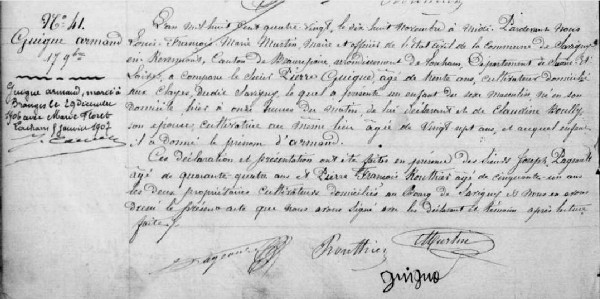 N° 41.
Guigue armand
17 9bre
Guigue armand, marié à
Branges le 29 Décembre
1906 avec Marie Floret
Louhans 8 Janvier 1907
L'an mil huit cent quatre vingt, le dix huit novembre à midi Pardevant nous
Louis François Marie Martin Maire et officier de l'état civil de la commune de Savigny
en Revermont, Canton de Beaurepaire, arrondissement de Louhans, Département de Saône et
Loire, a comparu le Sieur Pierre Guigue, âgé de trente ans, cultivateur domicilié
aux Clayes, dudit Savigny, lequel a présenté un enfant du sexe masculin, né en son
domicile hier à onze heures du matin, de lui déclarant et de Claudine Boully
son épouse, cultivatrice au même lieu âgée de vingt sept ans, et auquel enfant
il a donné le prénom d'armand.
Ces déclaration et présentation ont été faites en présence des Sieurs Joseph
âgé de quarante quatre ans et Pierre François Routhier âgé de cinquante six ans
les deux propriétaires cultivateurs domiciliés au Bourg de Savigny et nous en avons
dressé le présent acte que nous avons signé avec les déclarant et témoins après lecture
faite.
Routhier Martin
guigue